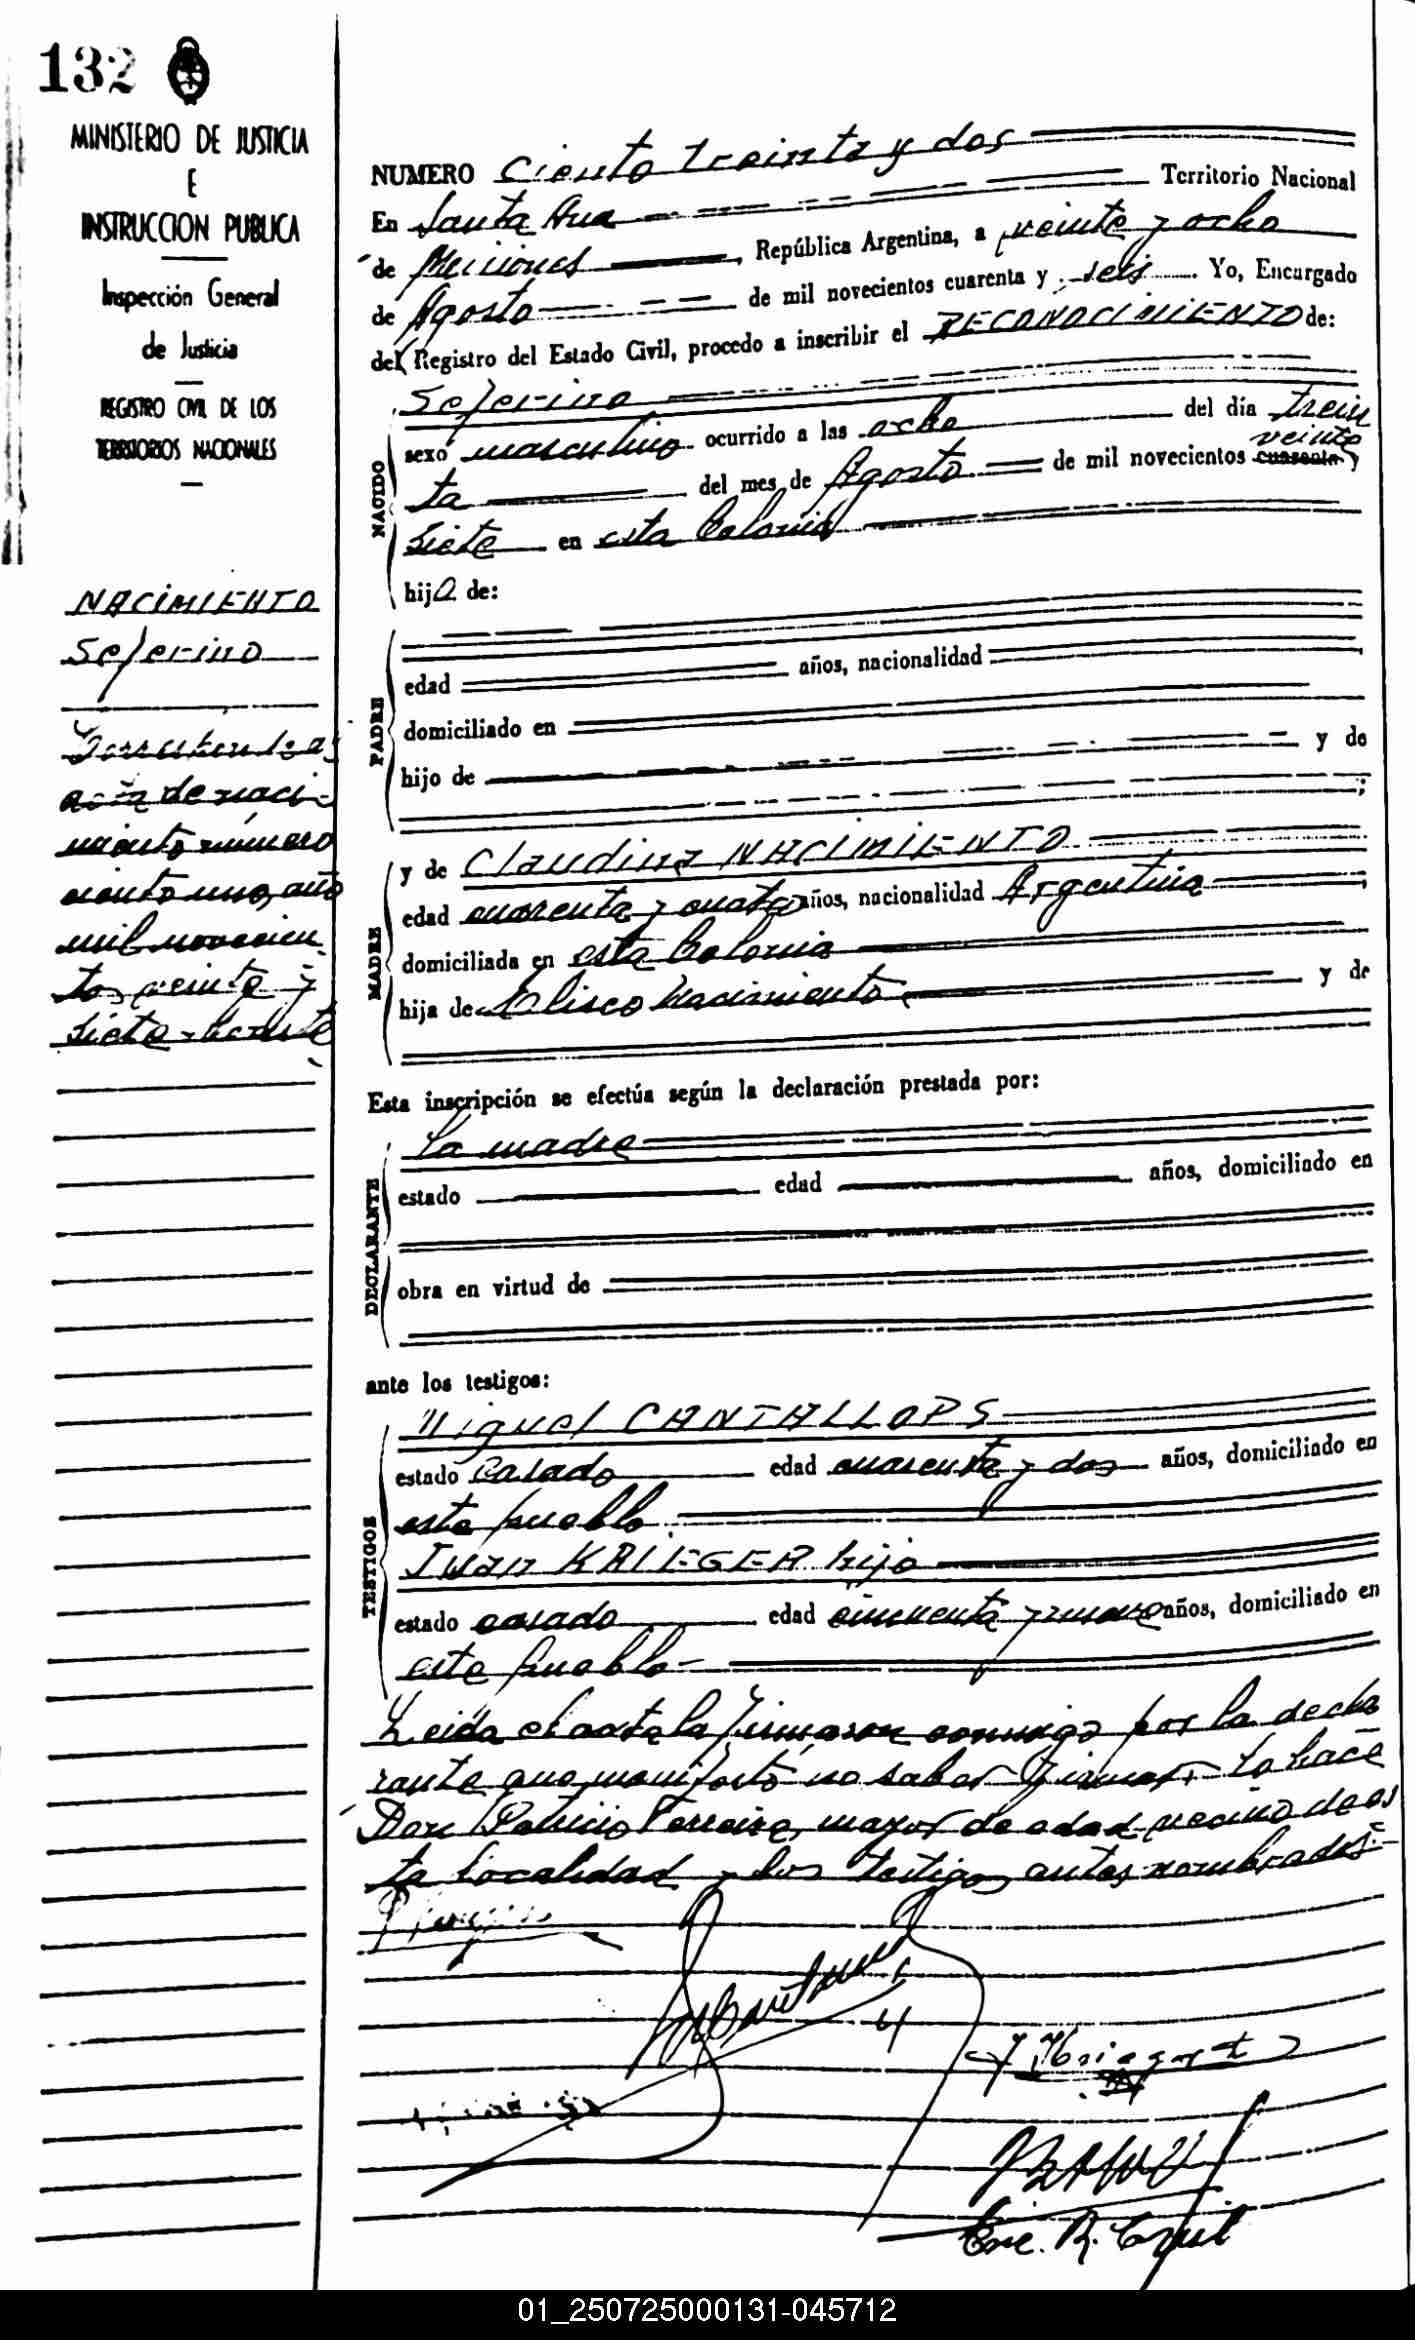 132
MINISTERIO DE JUSTICIA
E
INSTRUCCION PUBLICA
Inspección General
de Justicia
REGISTRO CIVIL DE LOS
TERRITORIOS NACIONALES
NACIMIENTO
Seferino
acta de naci-
miento número
ciento uno, año
mil novecien
tos veinte y
siete
NUMERO Ciento treinta y dos
En Santa Ana Territorio Nacional
de Misiones, República Argentina, a veinte y ocho
de Agosto de mil novecientos cuarenta y seis Yo, Encargado
del Registro del Estado Civil, procedo a inscribir el RECONOCIMIENTO de:
NACIDO
Seferino
sexo masculino ocurrido a las ocho del día trein
ta del mes de Agosto de mil novecientos cuarenta veinte y
siete en esta Colonia
hijo de:
PADRE
edad años, nacionalidad
domiciliado en
hijo de y de
;
MADRE
y de Claudina NACIMIENTO
edad cuarenta y cuatro años, nacionalidad Argentina
domiciliada en esta Colonia
hija de Nacimiento y de
Esta inscripción se efectúa según la declaración prestada por:
DECLARANTE
La madre
estado edad años, domiciliado en
obra en virtud de
ante los testigos:
TESTIGOS
Miguel CANTALLOPS
estado casado edad cuarenta y dos años, domiciliado en
este pueblo
Juan KRIEGER hijo
estado casado edad cincuenta y nueve años, domiciliado en
este pueblo
Leida el acta la firmaron conmigo por la decla
rante que manifestó no saber firmar lo hace
Don Patricio Ferreira, mayor de edad vecino de es
ta localidad y los testigos antes nombrados
Enc. R. Civil
01_250725000131-045712